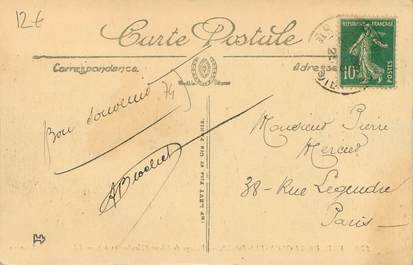 12 €
Carte Postale
RÉPUBLIQUE FRANÇAISE
10c
POSTES
Correspondance
Adresse
Bon souvenir
Monsieur Pierre
Mercier
38 - Rue Legendre
Paris -
IMP. LÉVY Fils et Cie PARIS.
LL